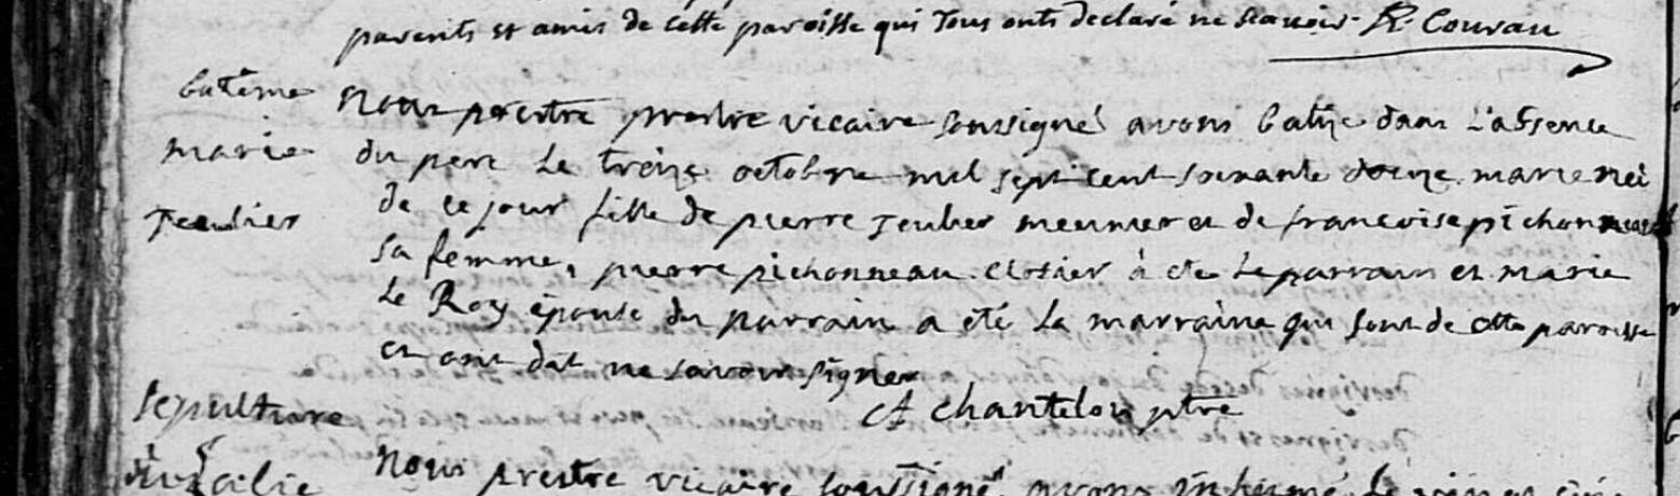 parents et amis de cette paroisse qui tous onts declaré ne scavoir. R. Couvau
batême
marie
Teulier
nous prestre vicaire soussigné avons batize dans l'absence
du pere le treize octobre mil sept cent soixante douze marie neé
de ce jour fille de pierre Teulier meunier et de francoise pichonneau
sa femme, pierre pichonneau closier à ete le parrain et marie
le Roy épouse du parrain a été la marraine qui sont de cette paroisse
et ont dit ne savoir signer
A chantelou ptre
sepulture
Nous prestre vicaire soussigné avons inhumé le